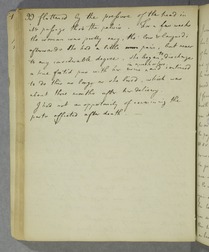 33 flattened by the pressure of the head in
its passage thro' the pelvis. In a few weeks
the woman was pretty easy, the low & languid,
afterwards she had a little more pain, but never
to any considerable degree. She began to discharge
a thin foetid pus with her urine and continued
to do this as long as she lived, which was
about three months after her delivery
I had not an opportunity of examining the
parts affected after death